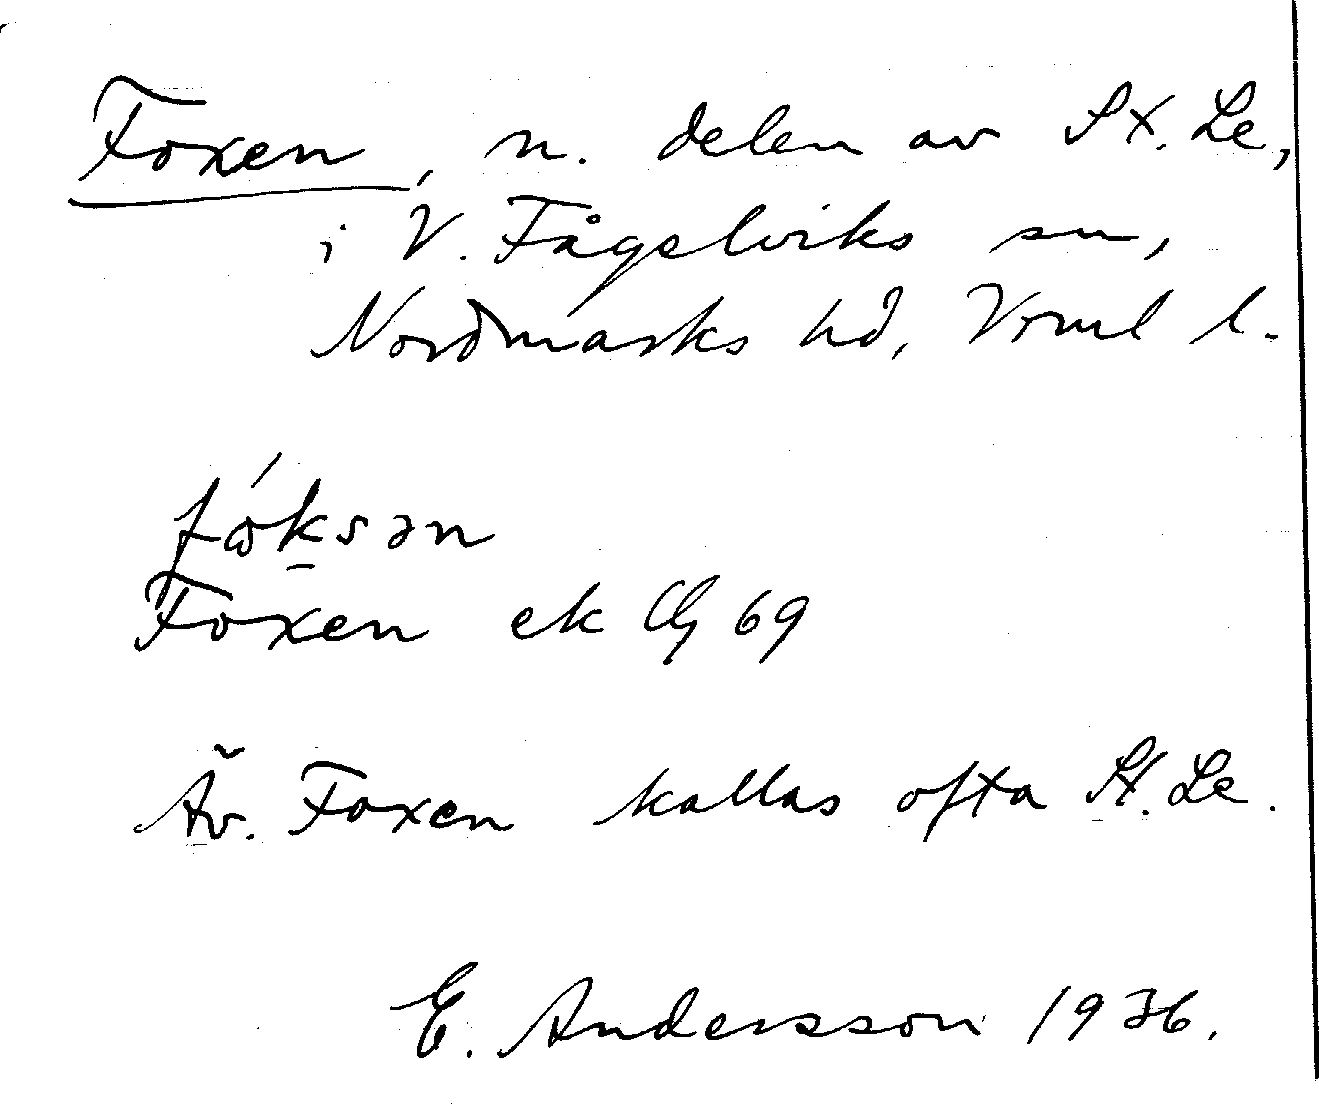 Foxen, n. delen av St. Le,
i V. Fågelviks sn,
Nordmarks hd, Vrml l.
fóksən
Foxen ek 69
Äv. Foxen kallas ofta St. Le.
E. Andersson 1936.